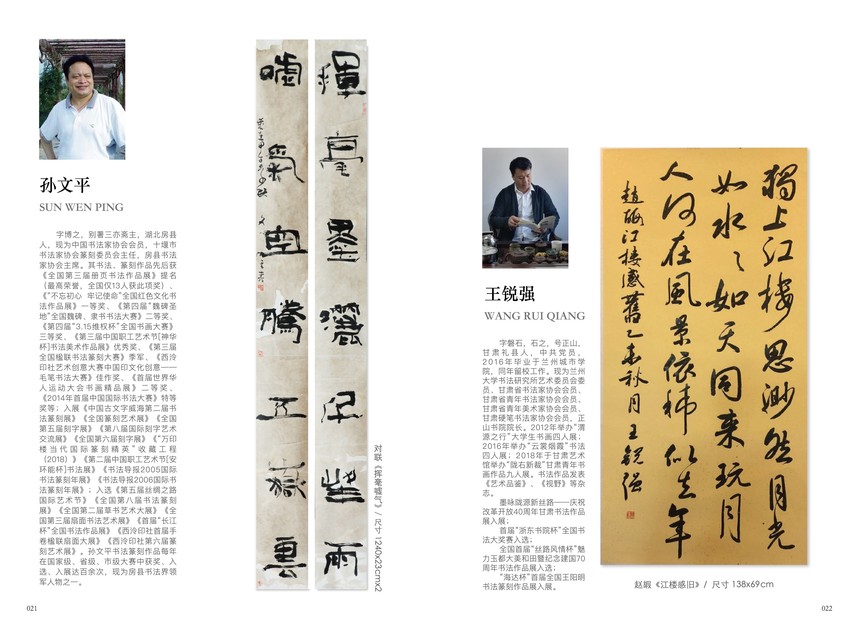 孙文平
SUN WEN PING
字博之，别署三亦斋主，湖北房县
人，现为中国书法家协会会员，十堰市
书法家协会篆刻委员会主任，房县书法
家协会主席。其书法、篆刻作品先后获
《全国第三届册页书法作品展》提名
（最高荣誉，全国仅13人获此项奖）、
《“不忘初心 牢记使命”全国红色文化书
法作品展》一等奖、《第四届“魏碑圣
地”全国魏碑、隶书书法大赛》二等奖、
《第四届“3.15维权杯”全国书画大赛》
三等奖、《第三届中国职工艺术节[神华
杯]书法美术作品展》优秀奖、《第三届
全国楹联书法篆刻大赛》季军、《西泠
印社艺术创意大赛中国印文化创意——
毛笔书法大赛》佳作奖、《首届世界华
人运动大会书画精品展》二等奖、
《2014年首届中国国际书法大赛》特等
奖等；入展《中国古文字威海第二届书
法篆刻展》《全国篆刻艺术展》《全国
第五届刻字展》《第八届国际刻字艺术
交流展》《全国第六届刻字展》《“万印
楼当代国际篆刻精英”收藏工程
（2018）》《第二届中国职工艺术节[安
环能杯]书法展》《书法导报2005国际
书法篆刻年展》《书法导报2006国际书
法篆刻年展》；入选《第五届丝绸之路
国际艺术节》《全国第八届书法篆刻
展》《全国第二届草书艺术大展》《全
国第三届扇面书法艺术展》《首届“长江
杯”全国书法作品展》《西泠印社首届手
卷楹联扇面大展》《西泠印社第六届篆
刻艺术展》。孙文平书法篆刻作品每年
在国家级、省级、市级大赛中获奖、入
选、入展达百余次，现为房县书法界领
军人物之一。
揮毫墨灑千峯雨
嘘氣空騰五嶽雲
对联《挥毫嘘气》/ 尺寸 1240x23cmx2
021
王锐强
WANG RUI QIANG
字磐石，石之，号正山，
甘肃礼县人，中共党员，
2016年毕业于兰州城市学
院，同年留校工作。现为兰州
大学书法研究所艺术委员会委
员、甘肃省书法家协会会员、
甘肃省青年书法家协会会员、
甘肃省青年美术家协会会员、
甘肃硬笔书法家协会会员，正
山书院院长。2012年举办“渭
源之行”大学生书画四人展；
2016年举办“云裳烟霞”书法
四人展；2018年于甘肃艺术
馆举办“陇右新裁”甘肃青年书
画作品九人展。书法作品发表
《艺术品鉴》、《视野》等杂
志。
墨咏陇源新丝路——庆祝
改革开放40周年甘肃书法作品
展入展；
首届“浙东书院杯”全国书
法大奖赛入选；
全国首届“丝路风情杯”魅
力玉都大美和田暨纪念建国70
周年书法作品展入选；
“海达杯”首届全国王阳明
书法篆刻作品展入展。
獨上江樓思渺然月光
如水々如天同來玩月
人何在風景依稀似去年
趙嘏江樓感舊乙未秋月王銳强
赵嘏《江楼感旧》/ 尺寸 138x69cm
022